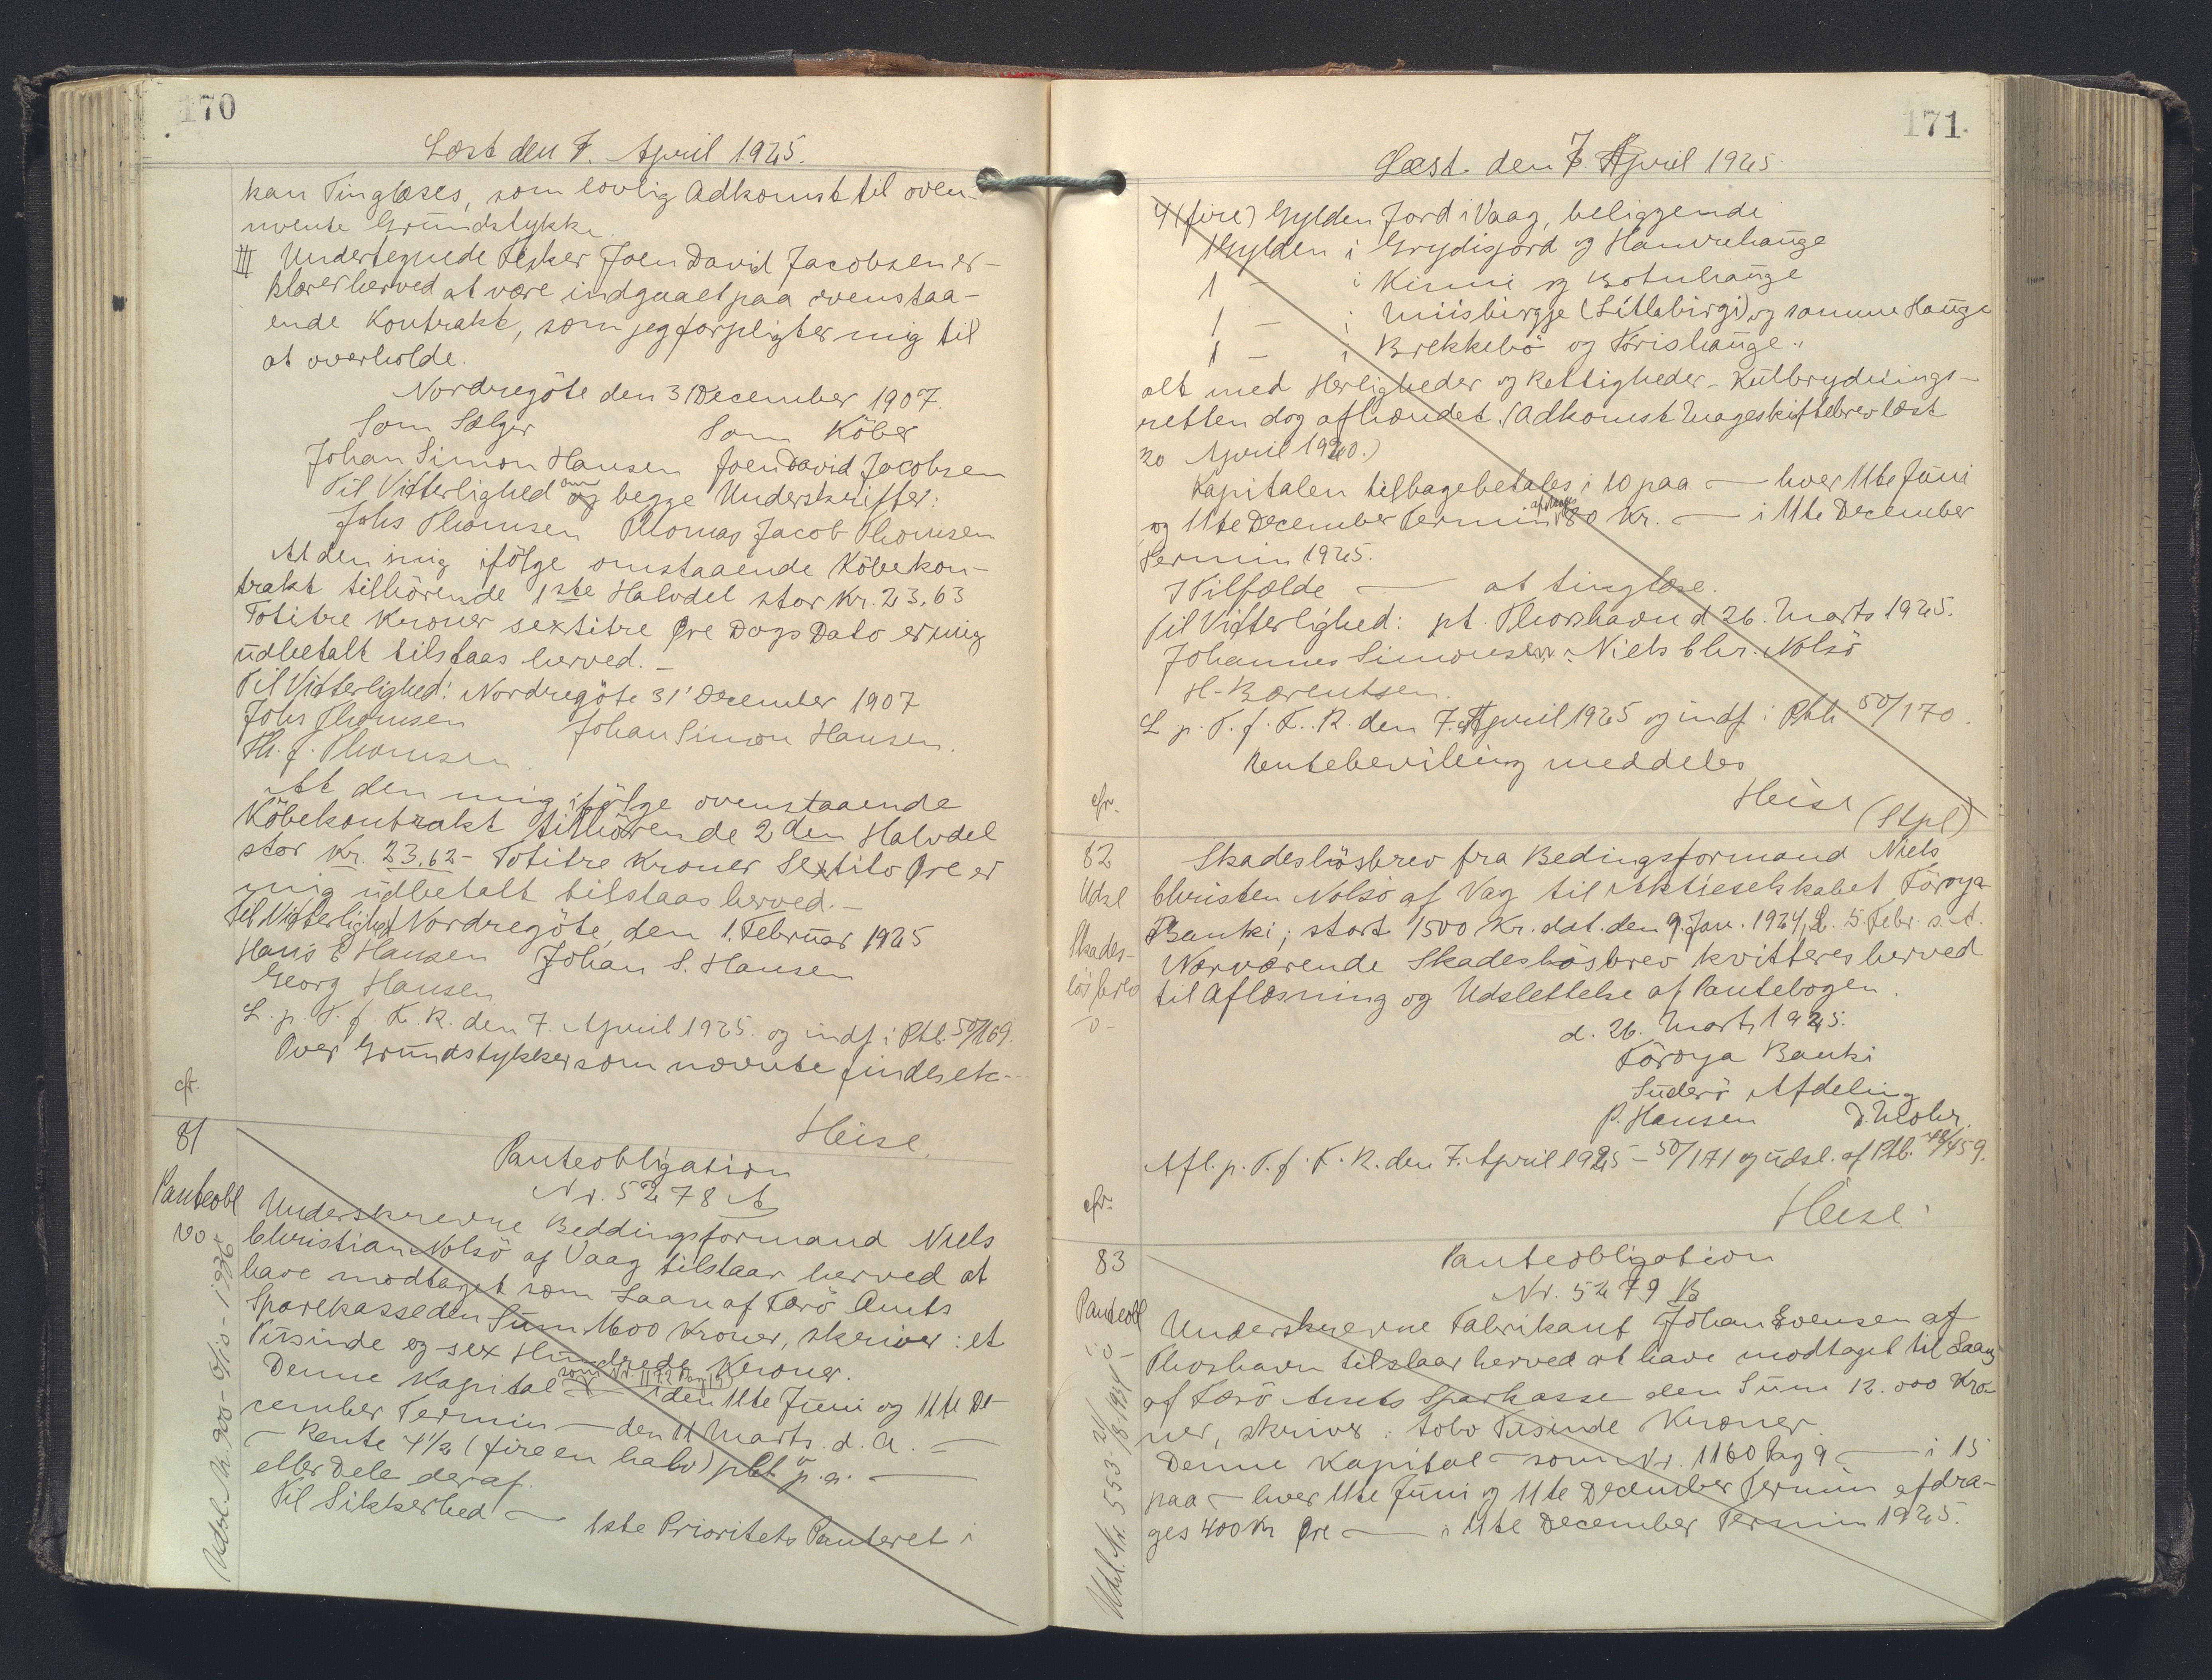 170
Læst den 7. April 1925.
kan Tinglæses, som lovlig Adkomst til oven-
nævnte Grundstykke.
III Undertegnede Fisker Joen David Jacobsen er-
klærer herved at være indgaaet paa ovenstaa-
ende Kontrakt, som jeg forpligter mig til
at overholde.
Nordregöte den 31 December 1907.
Som Sælger Som Köber
Johan Simon Hansen Joen David Jacobsen
Til Vitterlighed om begge Underskrifter:
Johs Thomsen Thomas Jacob Thomsen
At den mig ifölge omstaaende Köbekon-
trakt tilhörende 1ste Halvdel stor Kr. 23,63
Totitre Kroner sextitre Øre Dags Dato er mig
udbetalt tilstaas herved. -
Til Vitterlighed: Nordregöte 31' December 1907
Johs Thomsen Johan Simon Hansen.
Th. J. Thomsen.
At den mig ifölge ovenstaaende
Köbekontrakt tilhörende 2den Halvdel
stor Kr. 23,62 - Totitre Kroner Sextito Øre er
mig udbetalt tilstaas herved. -
Til Vitterlighed Nordregöte, den 1. Februar 1925
Hans E Hansen Johan S. Hansen
Georg Hansen
L. p. T. f. F. R. den 7. April 1925. og indf. i Ptb. 50/169.
Over Grundstykker som nævnte findes etc---
cfr.
Heise.
81
Panteobl
Panteobligation
Nr. 5278 A
Underskrevne Beddingsformand Niels
Christian Nolsö af Vaag tilstaar herved at
have modtaget som Laan af Færö Amts
Sparekasse den Sum 1600 Kroner, skriver: et
Tusinde og sex Hundrede Kroner.
Denne Kapital som Nr. 1172 Pag 19 - den 11te Juni og 11te De-
cember Termin - den 11 Marts d. A. -
- Rente 4½ (fire en halv) pCt p. a. -
eller Dele deraf.
Til Sikkerhed - 1ste Prioritets Panteret i
171
Læst den 7. April 1925.
4 (fire) Gylden Jord i Vaag, beliggende
1 Gylden i Grydisgord og Hamrehauge
1 - i Kinni og Botnhauge
1 - i Miisbirgje (Litlabirgi) og samme Hauge
1 - i Brekkebö og Korishauge..
alt med Herligheder og Rettigheder - Kulbrydnings-
retten dog afhændet. (Adkomst Mageskiftebrev læst
20 April 1920.)
Kapitalen tilbagebetales i 10 paa - hver 11te Juni
og 11te December Termin afdrages 80 Kr. - i 11te December
Termin 1925.
I Tilfælde - at tinglæse.
Til Vitterlighed: pt. Thorshavn d 26. Marts 1925.
Johannes Simonsen. Niels Chr. Nolsö
H. Bærentsen.
L p. T. f. F. R. den 7. April 1925 og indf. i Ptb. 50/170.
Rentebevilling meddeles
Heise (Stpl)
cfr.
82
Udsl
Skades-
lösbrev
-0-
Skadeslösbrev fra Bedingsformand Niels
Christen Nolsö af Vag til Aktieselskabet Föroya
Banki, stort 1500 Kr. dat. den 9. Jan. 1924, L. 5. Febr. s. A.
Nærværende Skadeslösbrev kvitteres herved
til Aflæsning og Udslettelse af Pantebogen.
d. 26. Marts 1925.
Föroya Banki
Suderö Afdeling
P. Hansen D. Mohr.
Afl. p. T. f. F. R. den 7. April 1925 - 50/171 og udsl. af Ptb. 48/459.
cfr.
Heise.
83
Panteobl
Panteobligation
Nr. 5279 B
Underskrevne Fabrikant Johan Evensen af
Thorshavn tilstaar herved at have modtaget til Laans
af Færö Amts Sparkasse den Sum 12.000 Kro-
ner, skriver: tolv Tusinde Kroner.
Denne Kapital - som Nr. 1160 Pag 9 - i 15
paa - hver 11te Juni og 11te December Termin afdra-
ges 400 Kr Øre - i 11te December Termin 1925.